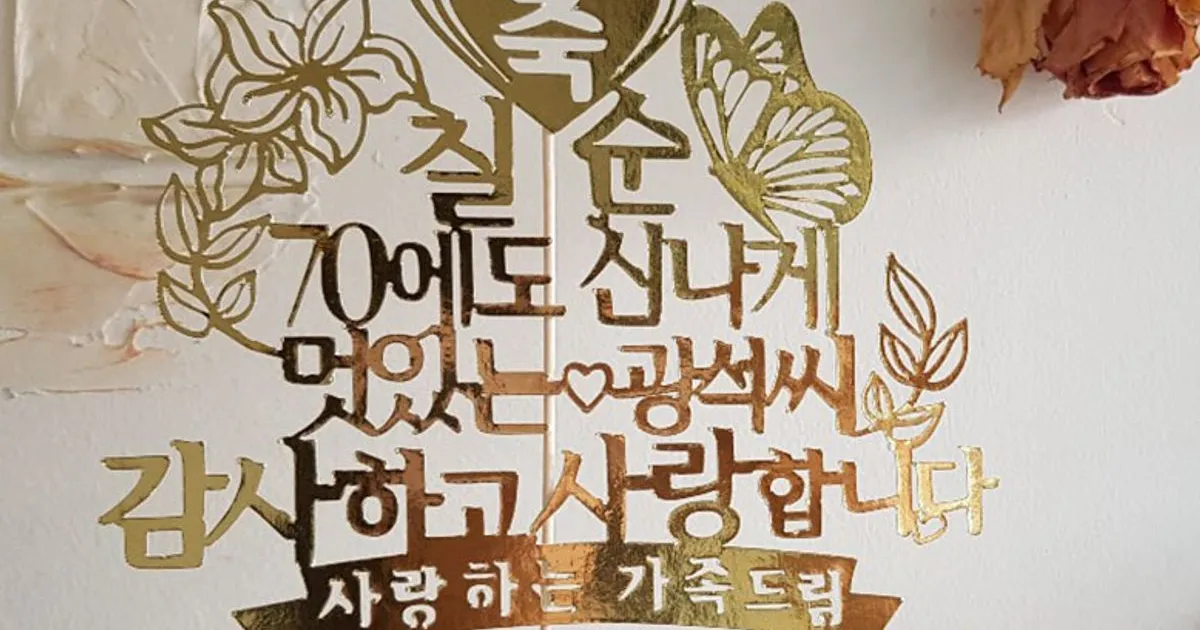 축
칠순
70에도 신나게
멋있는♡광석씨
감사하고사랑합니다
사랑하는 가족드림